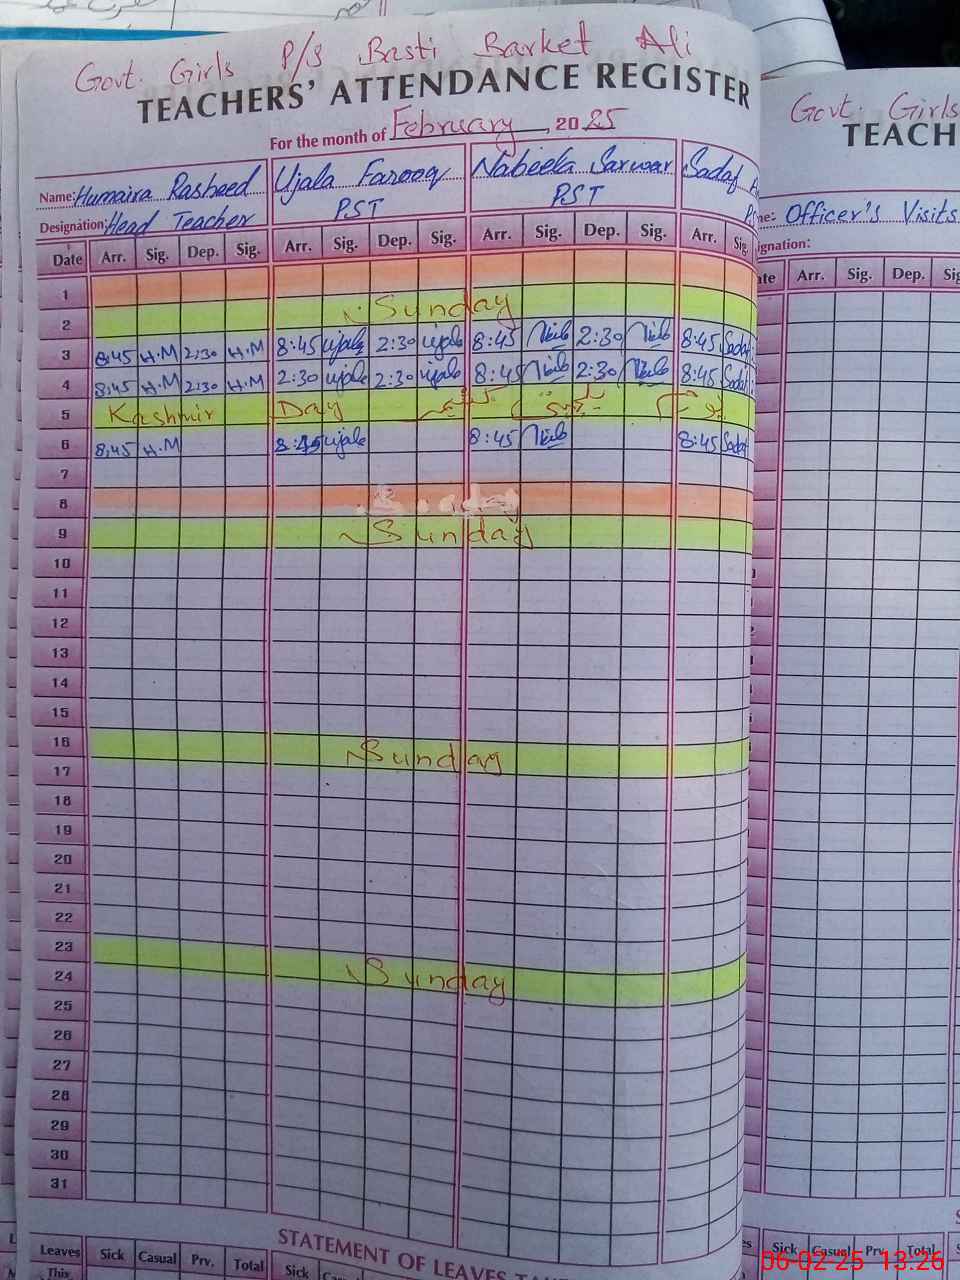 Govt. Girls P/S Basti Barket Ali
TEACHERS' ATTENDANCE REGISTER
For the month of February, 2025
Name: Humaira Rasheed Ujala Farooq Nabeela Sarwar Sadaf
Designation: Head Teacher PST PST
Date Arr. Sig. Dep. Sig. Arr. Sig. Dep. Sig. Arr. Sig. Dep. Sig. Arr. Sig.
1
2 Sunday
3 8:45 H.M 2:30 H.M 8:45 ujala 2:30 ujala 8:45 2:30 8:45 Sadaf
4 8:45 H.M 2:30 H.M 2:30 ujala 2:30 ujala 8:45 2:30 8:45 Sadaf
5 Kashmir Day
6 8:45 H.M 8:45 ujala 8:45 8:45 Sadaf
7
8
9 Sunday
10
11
12
13
14
15
16 Sunday
17
18
19
20
21
22
23 Sunday
24
25
26
27
28
29
30
31
STATEMENT OF LEAVES
Leaves Sick Casual Prv. Total Sick
This
Govt. Girls
TEACH
Officer's Visits
ignation:
Arr. Sig. Dep.
Sick Casual Prv. Total
06-02-25 13:26